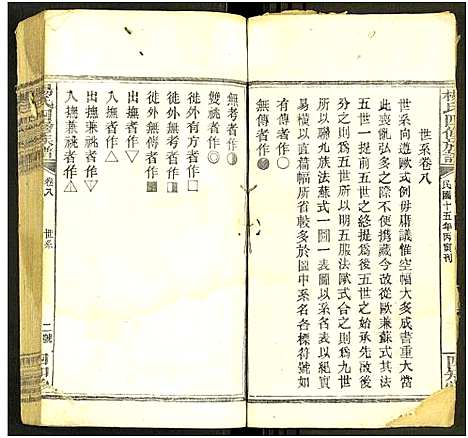 楊氏四修族譜
民國十五年丙寅刊
世系卷八
世系向遵歐式例毋庸議惟空幅大多成書重大當
此喪亂弘多之際不便攜藏此次改從歐兼蘇式其法
五世一提前五世之後提為後五世之始承先改後
分之則為五世所以明五服法歐式合之則為九世
所以聯九族蘇式一圖一表圖以系世表以系名
易橫直牆幅所省較多於圖中系名各標符號如
無傳者作〇
無考者作◎
雙祧者作
徙外有方者作
徙外無傳者作
出撫者作△
出撫兼祧者作
入撫者作
入撫兼祧者作
卷八
世系
二號
四知堂